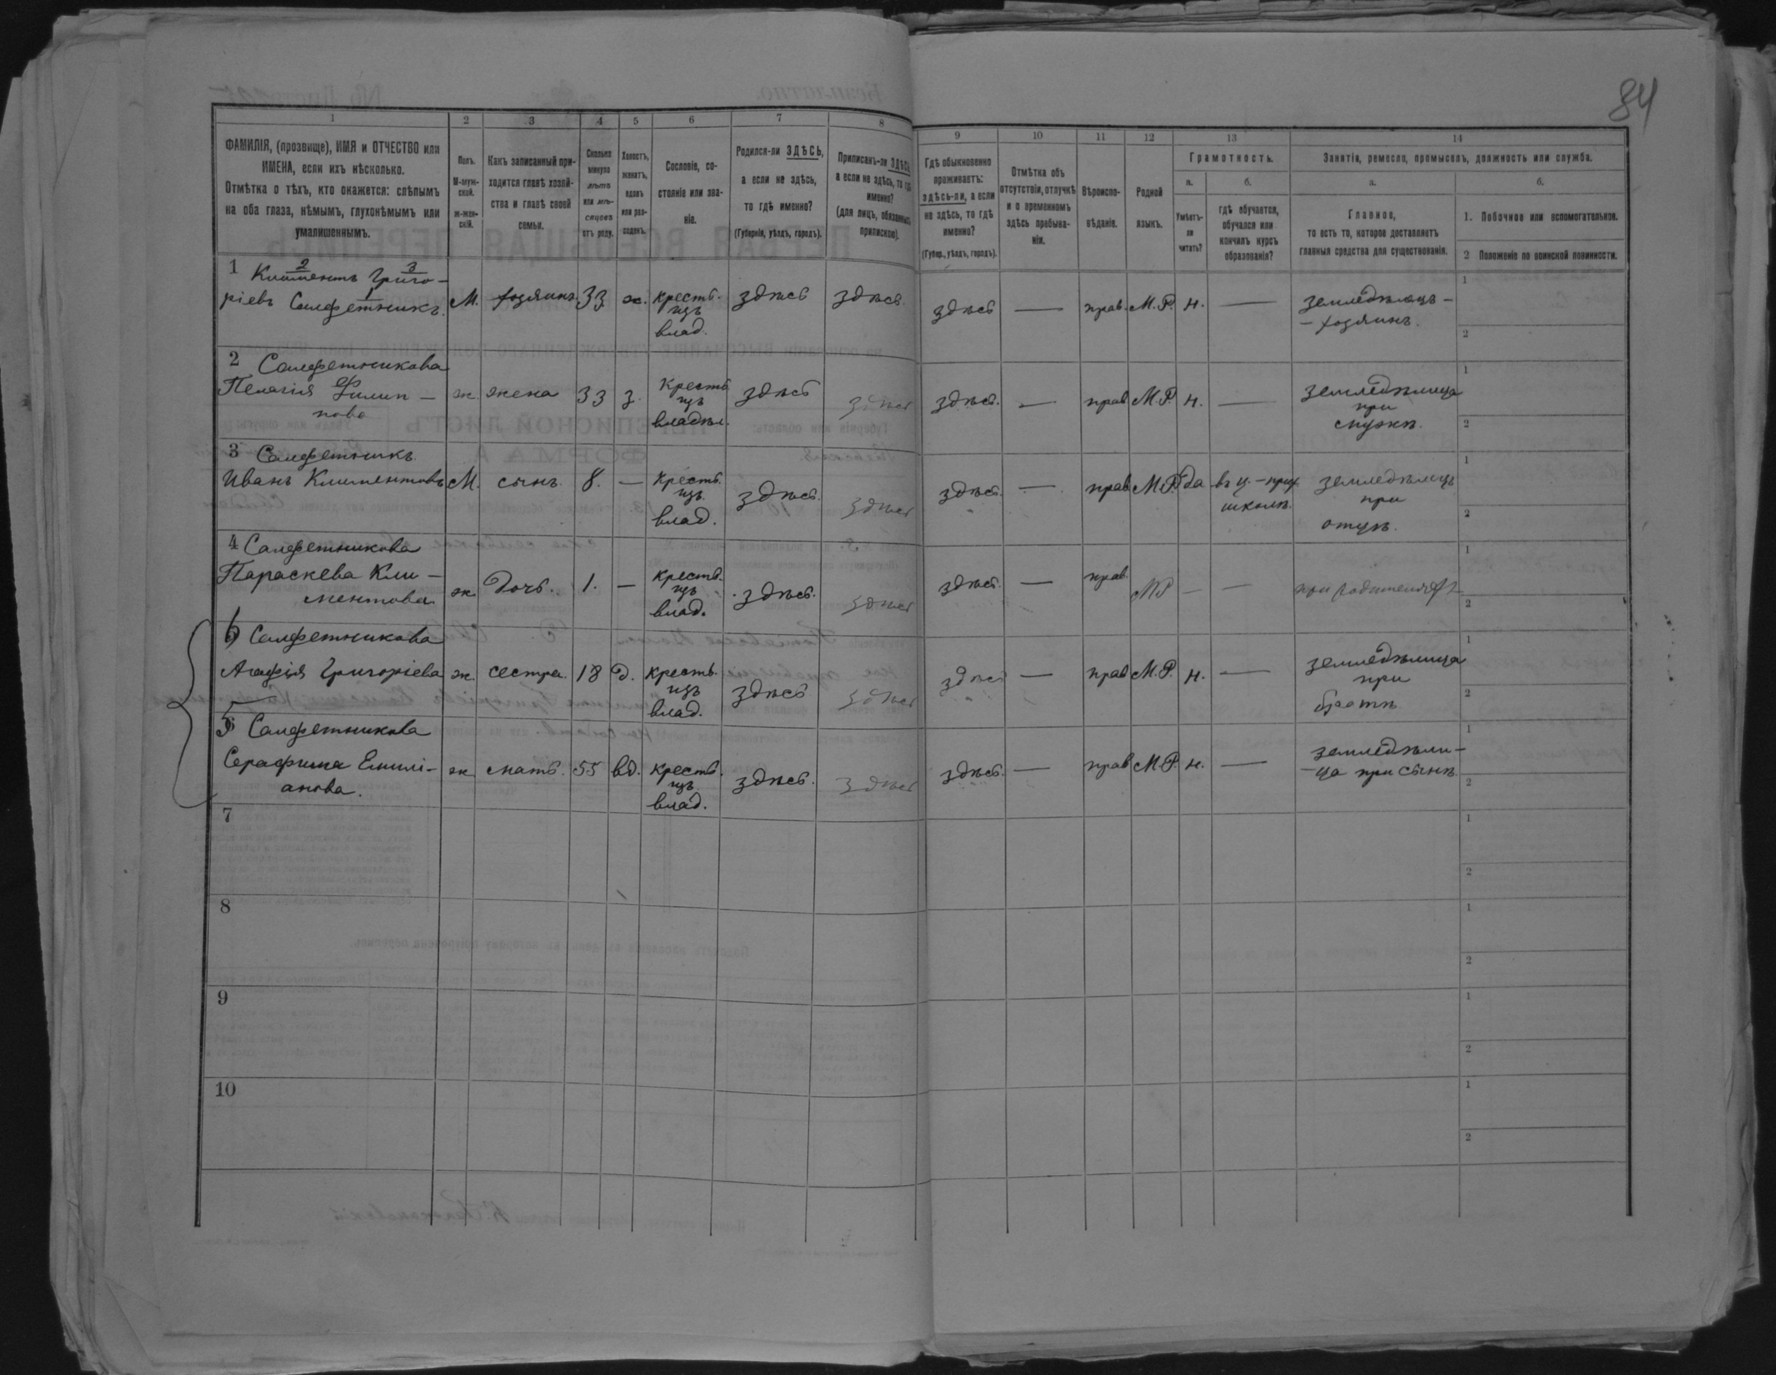 84
1 2 3 4 5 6 7 8 9 10 11 12 13 14
ФАМИЛІЯ, (прозвище), ИМЯ и ОТЧЕСТВО или
ИМЕНА, если ихъ нѣсколько.
Отмѣтка о тѣхъ, кто окажется: слѣпымъ
на оба глаза, нѣмымъ, глухонѣмымъ или
умалишеннымъ.
Полъ.
М-муж-
ской.
ж-жен-
скій.
Какъ записанный при-
ходится главѣ хозяй-
ства и главѣ своей
семьи.
Сколько
минуло
лѣтъ
или мѣ-
сяцевъ
отъ роду.
Холостъ,
женатъ,
вдовъ
или раз-
веденъ.
Сословіе, со-
стояніе или зва-
ніе.
Родился-ли ЗДѢСЬ,
а если не здѣсь,
то гдѣ именно?
(Губернія, уѣздъ, городъ).
Приписанъ-ли ЗДѢСЬ,
а если не здѣсь, то гдѣ
именно?
(для лицъ, обязанныхъ
припискою).
Гдѣ обыкновенно
проживаетъ:
здѣсь-ли, а если
не здѣсь, то гдѣ
именно?
(Губер., уѣздъ, городъ).
Отмѣтка объ
отсутствіи, отлучкѣ
и о временномъ
здѣсь пребыва-
ніи.
Вѣроиспо-
вѣданіе.
Родной
языкъ.
Грамотность.
а.
Умѣетъ-
ли
читать?
б.
гдѣ обучается,
обучался или
кончилъ курсъ
образованія?
Занятіе, ремесло, промыселъ, должность или служба.
а.
Главное,
то есть то, которое доставляетъ
главныя средства для существованія.
б.
1. Побочное или вспомогательное.
2 Положеніе по воинской повинности.
1 2 3
Климентъ Григо-
ріевъ 1 Салфетникъ.
М. хозяинъ 33 ж. крестъ. изъ влад. здѣсь здѣсь. здѣсь — прав. М.Р. н. — земледѣлецъ -
- хозяинъ.
1
2
2 Салфетникова
Пелагія Филип -
пова
ж жена 33 з. крестъ изъ владѣл. здѣсь здѣсь здѣсь. — прав. М.Р. н. — земледѣлица
при
мужѣ.
1
2
3 Салфетникъ
Иванъ Климентовъ
М. сынъ. 8. — крестъ. изъ влад. здѣсь. здѣсь здѣсь. — прав. М.Р. да въ ц.-прих.
школѣ.
земледѣлецъ
при
отцѣ.
1
2
4 Салфетникова
Параскева Кли -
ментова
ж дочь. 1. — крестъ. изъ влад. здѣсь. здѣсь здѣсь. — прав. МР — — при родителяхъ
1
2
6 Салфетникова
Агафія Григоріева
ж сестра 18 д. крестъ. изъ влад. здѣсь здѣсь здѣсь — прав. М.Р. н. — земледѣлица
при
братѣ
1
2
5 Салфетникова
Серафима Емилі-
анова.
ж мать. 55 вд. крестъ. изъ влад. здѣсь. здѣсь здѣсь. — прав. М.Р. н. — земледѣли-
-ца при сынѣ
1
2
7
1
2
8
1
2
9
1
2
10
1
2